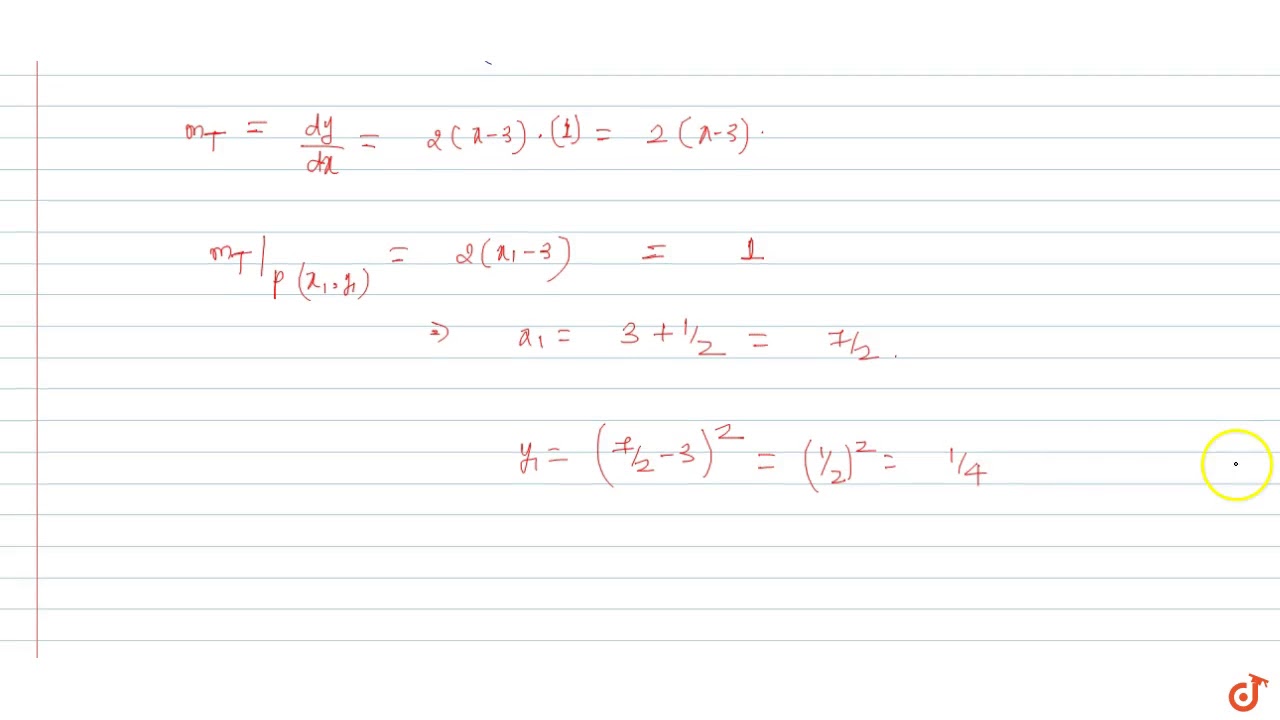 m_T = dy/dx = 2(x-3).(1) = 2(x-3).
m_T|_P(x₁,y₁) = 2(x₁-3) = 1
⇒ x₁ = 3 + 1/2 = 7/2.
y₁ = (7/2 - 3)² = (1/2)² = 1/4